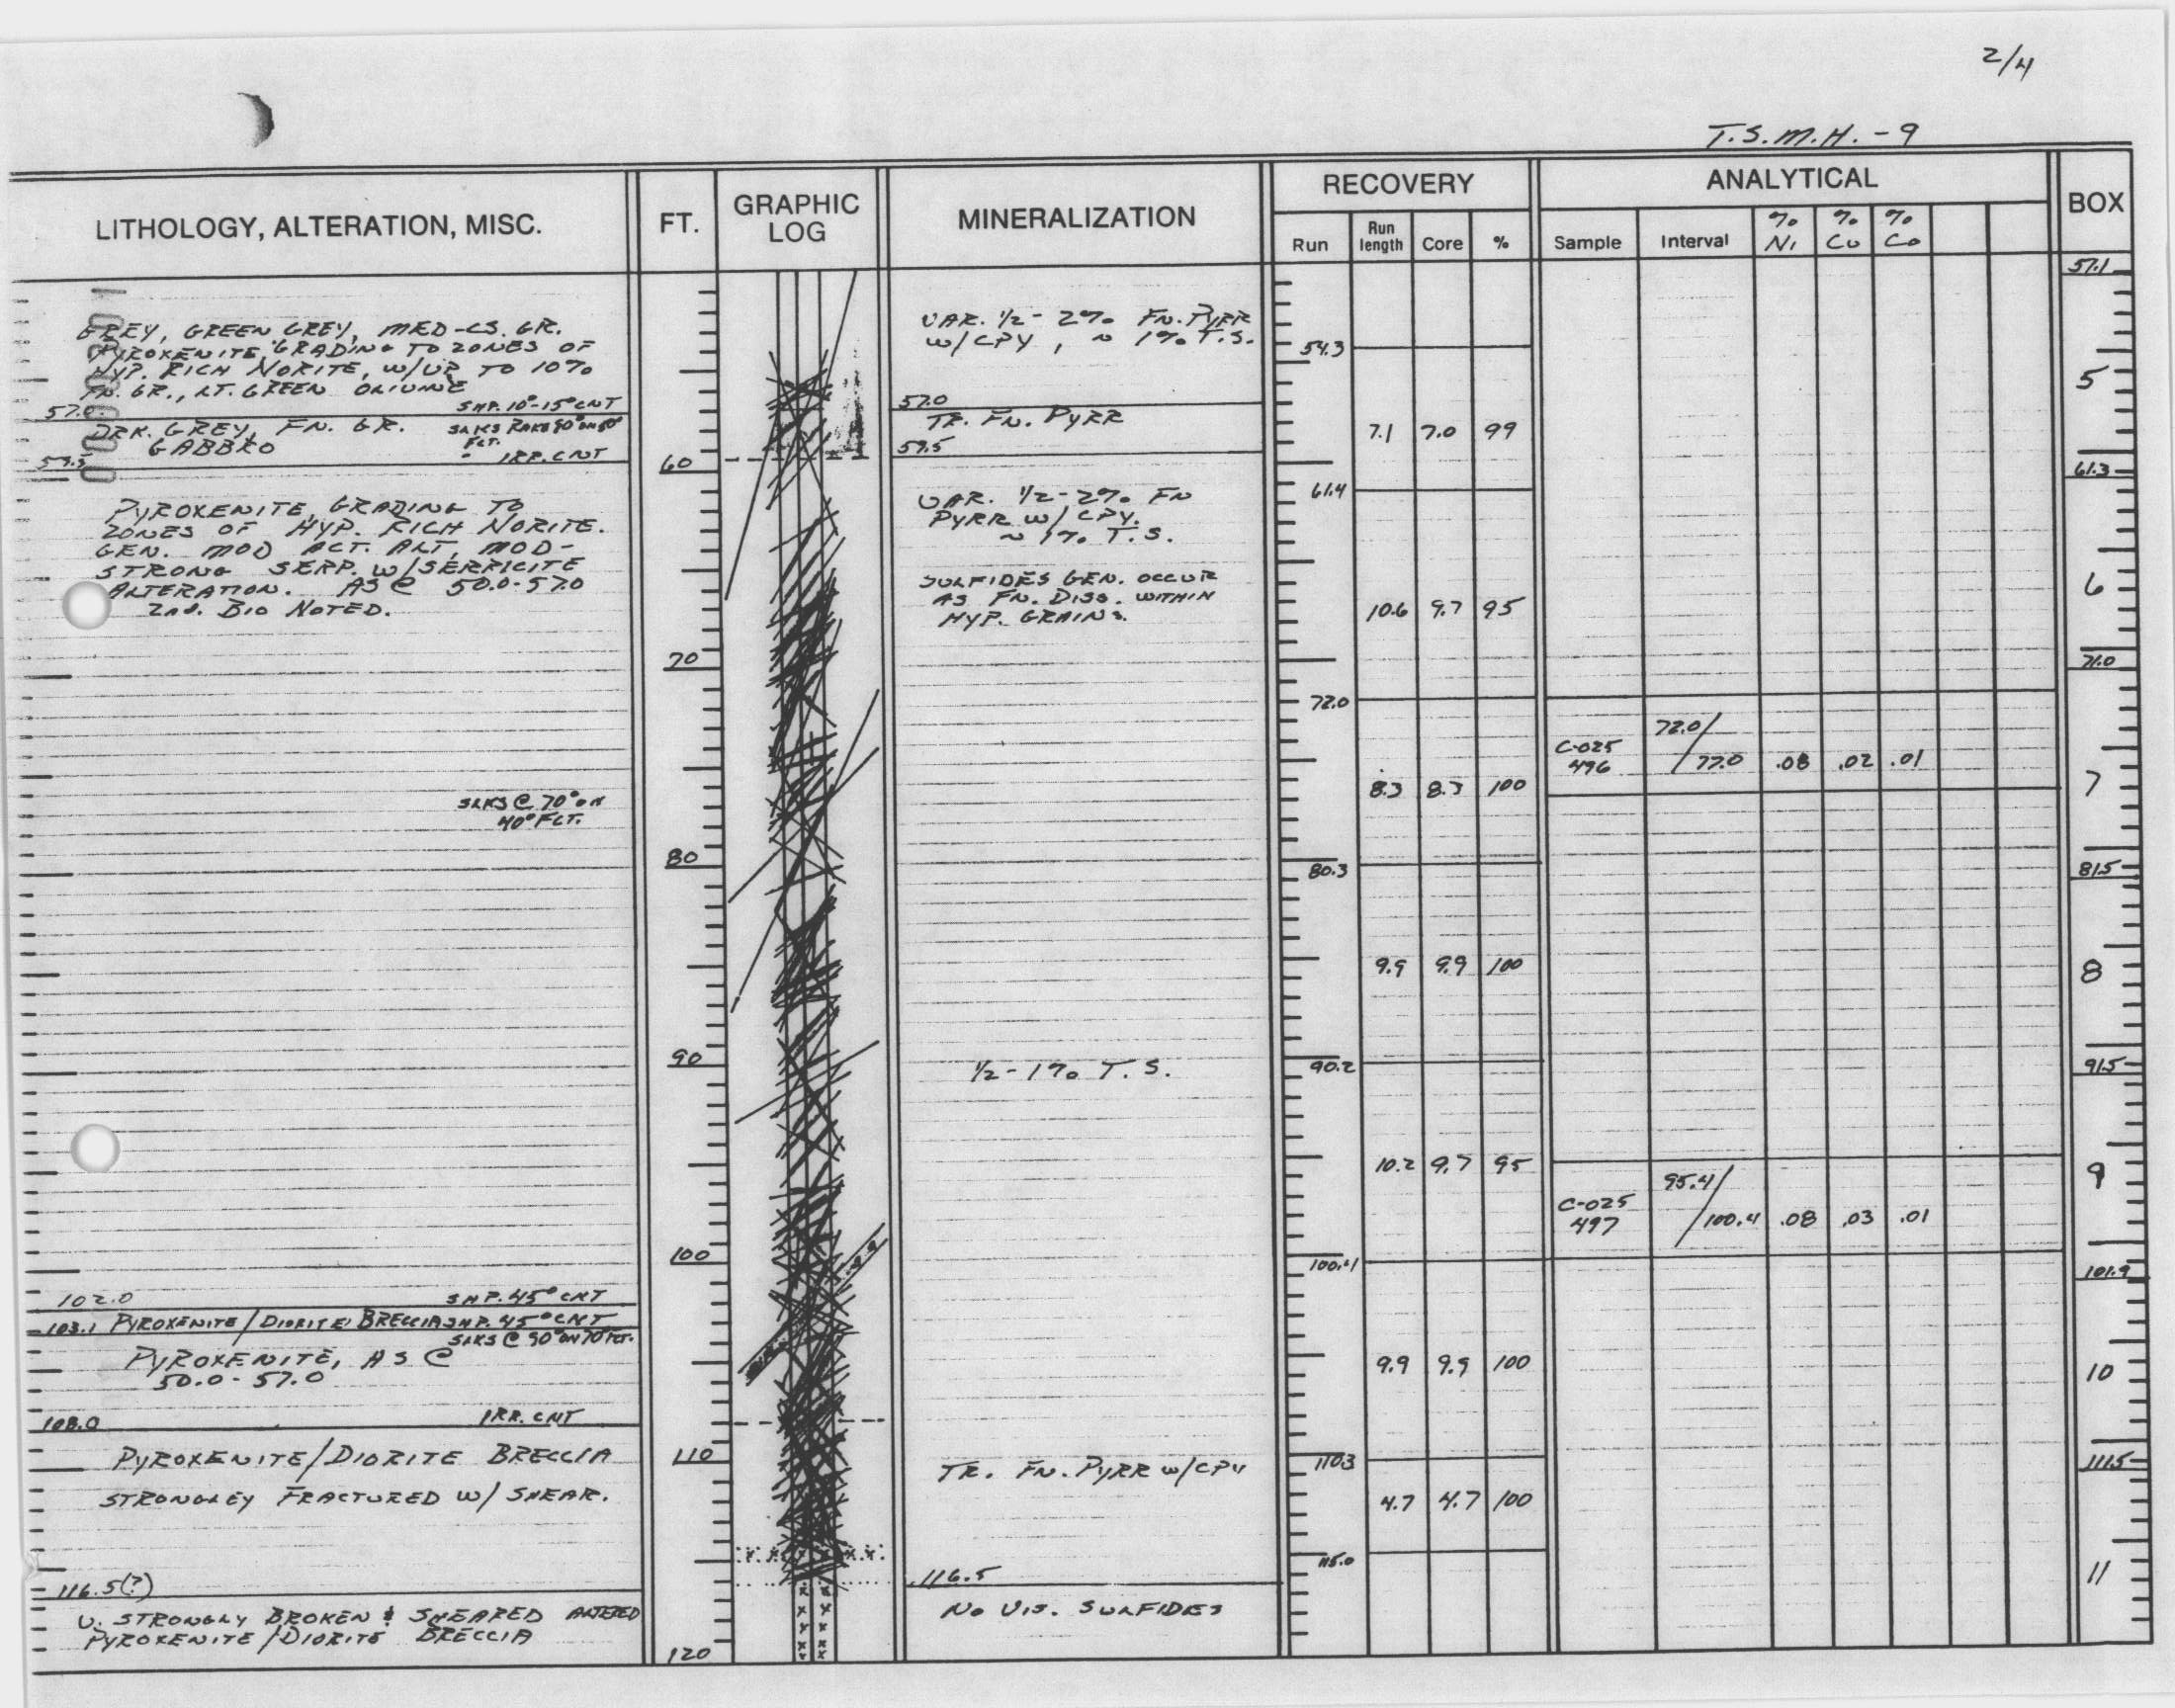 2/4
T.S.M.H.-9
LITHOLOGY, ALTERATION, MISC.
FT.
GRAPHIC
LOG
MINERALIZATION
RECOVERY
Run
Run
length
Core
%
ANALYTICAL
Sample
Interval
% Ni
% Cu
% Co
BOX
GREY, GREEN GREY, MED-CS. GR.
PYROXENITE GRADING TO ZONES OF
HYP. RICH NORITE, W/UP TO 10%
FN. GR., LT. GREEN OLIVINE
SHP. 10°-15° CNT
57.0
DRK. GREY, FN. GR.
GABBRO
FLT.
IRR. CNT
59.5
PYROXENITE, GRADING TO
ZONES OF HYP. RICH NORITE.
GEN. MOD ACT. ALT, MOD-
STRONG SERP. W/SERPICITE
ALTERATION. AS @ 50.0-57.0
2nd. BIO NOTED.
SLKS @ 70° ON
40° FLT.
102.0 SHP. 45° CNT
103.1 PYROXENITE/DIORITE BRECCIA SHP. 45° CNT
SLKS @ 90° ON 70° FLT.
PYROXENITE, AS @
50.0-57.0
108.0 IRR. CNT
PYROXENITE/DIORITE BRECCIA
STRONGLEY FRACTURED W/ SHEAR.
116.5(?)
V. STRONGLY BROKEN & SHEARED ALTERED
PYROXENITE/DIORITE BRECCIA
60
70
80
90
100
110
120
VAR. 1/2-2% FN. PYRR
W/CPY, ~ 1% T.S.
57.0
TR. FN. PYRR
59.5
VAR. 1/2-2% FN
PYRR W/ CPY.
~ 1% T.S.
SULFIDES GEN. OCCUR
AS FN. DISS. WITHIN
HYP. GRAINS.
1/2-1% T.S.
TR. FN. PYRR W/CPY
116.5
NO VIS. SULFIDES
54.3
7.1 7.0 99
61.4
10.6 9.7 95
72.0
8.3 8.3 100
80.3
9.9 9.9 100
90.2
10.2 9.7 95
100.4
9.9 9.9 100
110.3
4.7 4.7 100
115.0
C-025
496
72.0/
77.0 .08 .02 .01
C-025
497
95.4/
100.4 .08 .03 .01
51.1
5
61.3
6
71.0
7
81.5
8
91.5
9
101.9
10
111.5
11